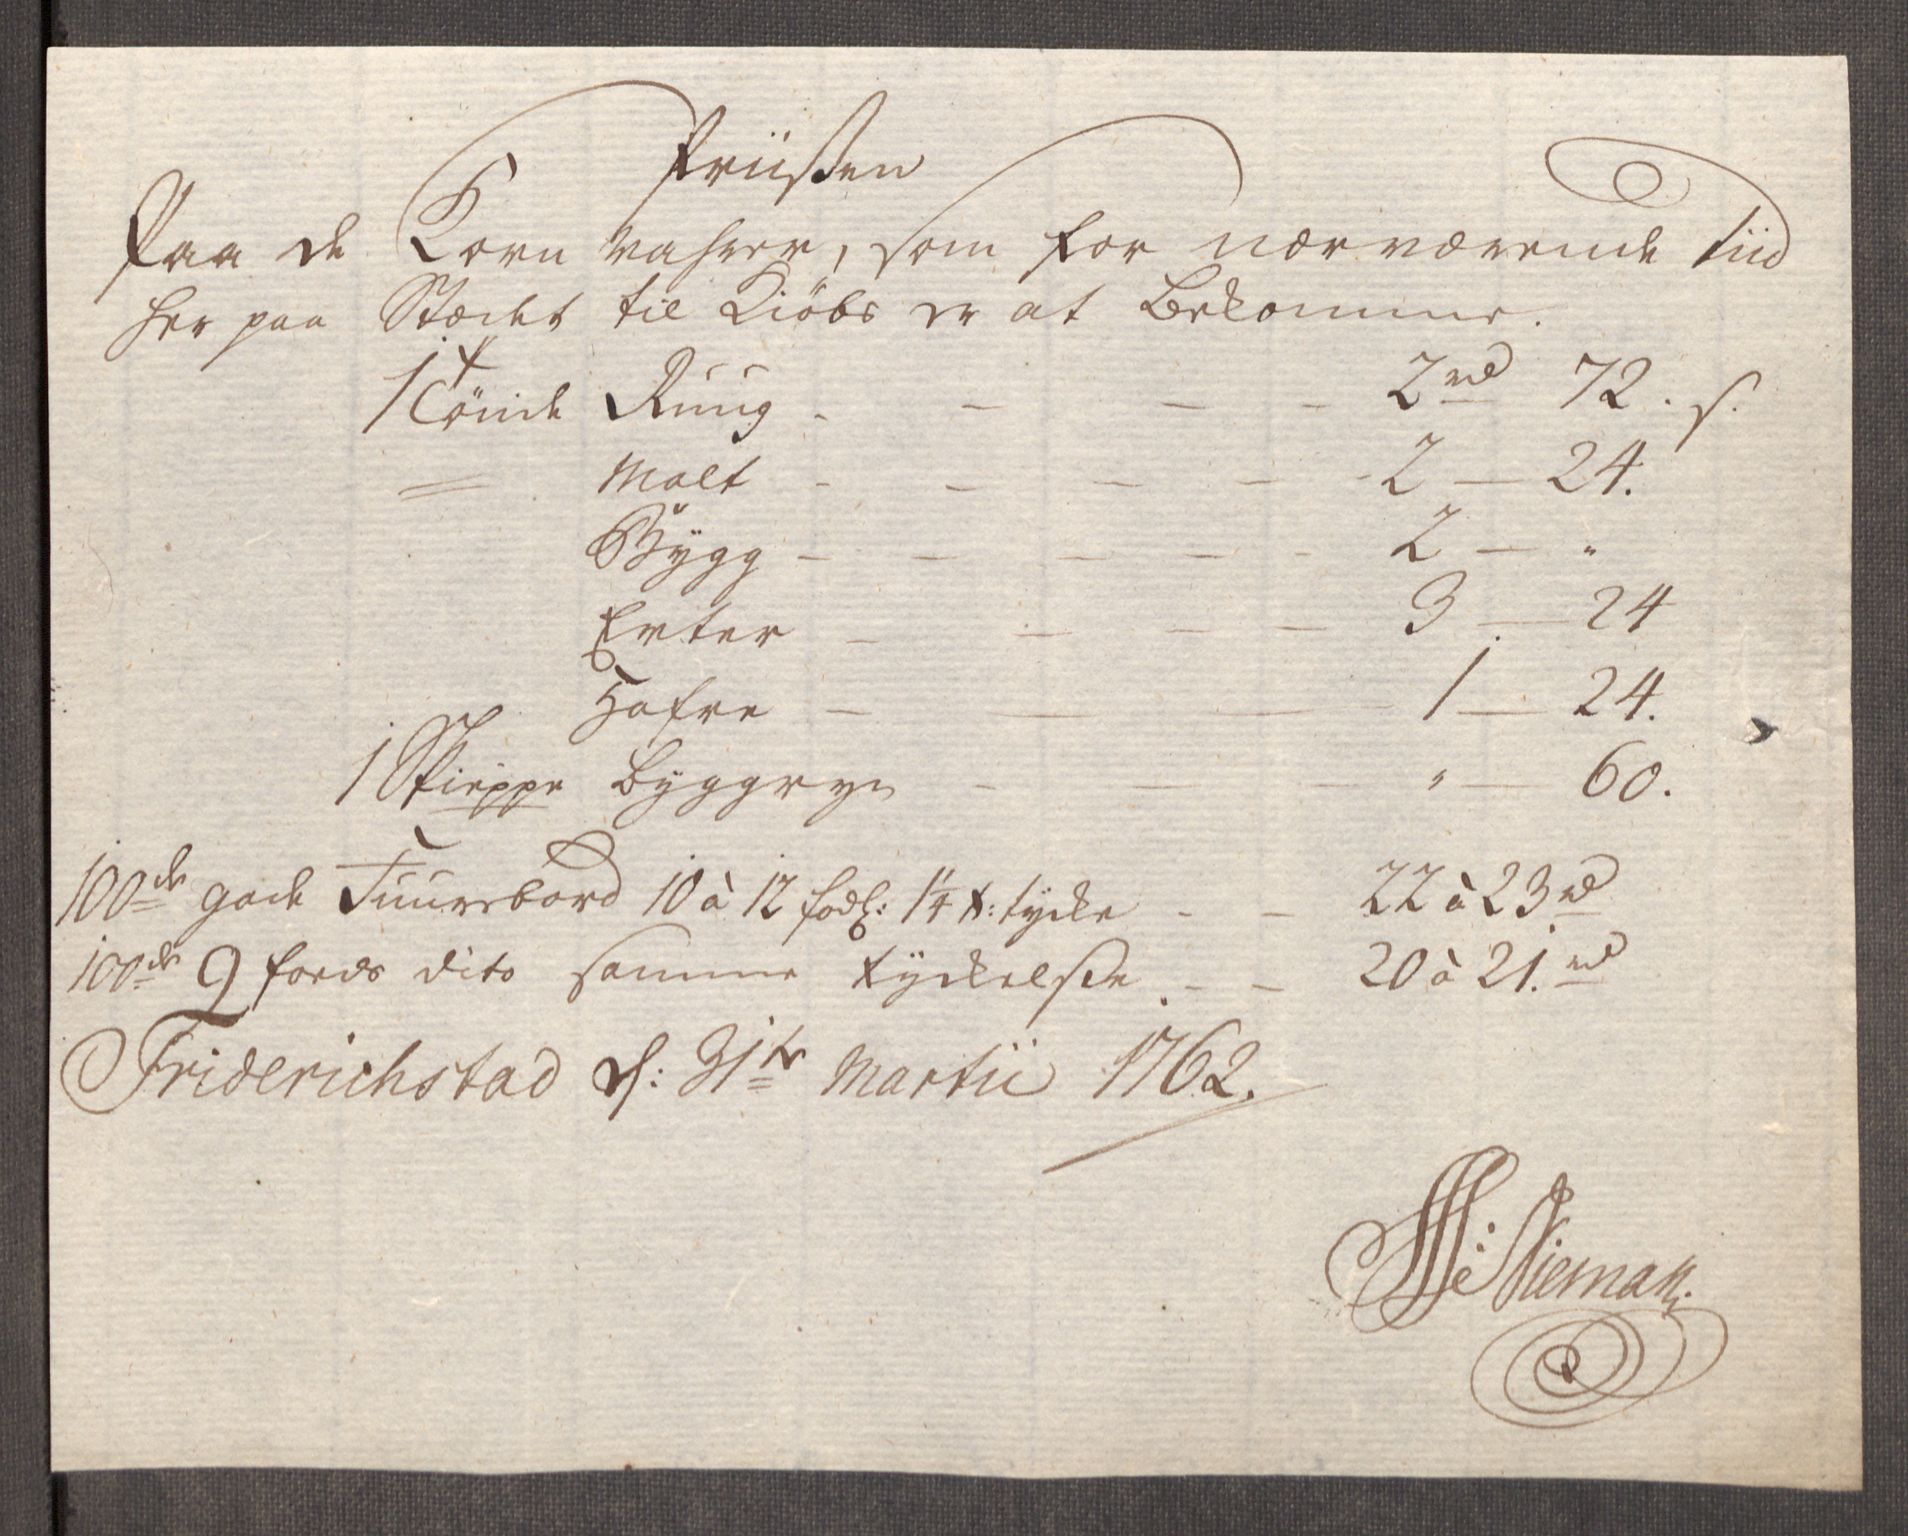 Priisen
Paa de Korn Vahrer, som for nærværende tiid
her paa Stædet til Kiöbs er at Bekomme.
1 Tönde Ruug - - - - 2 rd 72. s.
= Malt - - - - - 2 — 24.
Bÿgg - - - - - 2 — "
Erter - - - - 3 — 24
Hafre - - - 1 — 24.
1 Skieppe byggryn - - - " — 60.
100de gode Fuurbord 10 à 12 fod: 1¼ t: tycke - - 22 à 23 rd
100de 9 fods dito samme tyckelse. - - 20 à 21. rd
Friderichstad d: 31te Martii 1762.
Nieman